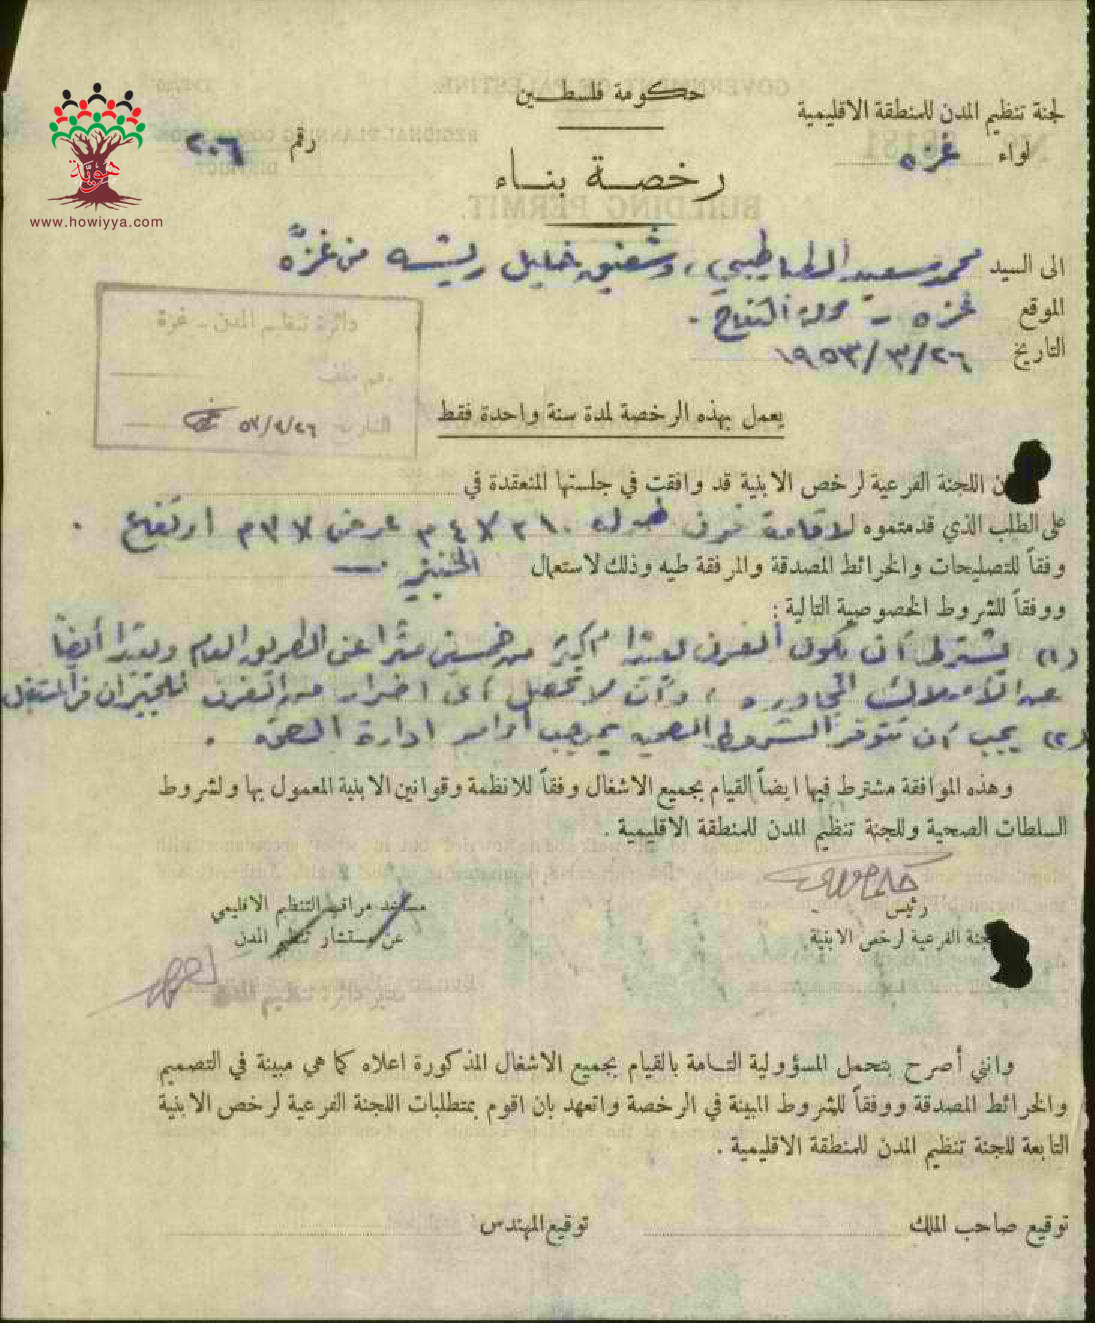 حكومة فلسطين
لجنة تنظيم المدن للمنطقة الاقليمية
لواء غزه
رقم ٢٠٦
هوية
www.howiyya.com
رخصة بناء
الى السيد محمد سعيد الطباطيبي، وشفيق خليل ريشه من غزة
الموقع غزه - محلة التفاح .
التاريخ ٢٦/٣/١٩٥٣
دائرة تنظيم المدن - غزة
رقم ملف
التاريخ
يعمل بهذه الرخصة لمدة سنة واحدة فقط
اللجنة الفرعية لرخص الابنية قد وافقت في جلستها المنعقدة في
على الطلب الذي قدمتموه لاقامة فرن طوله عرض ارتفاع .
وفقاً للتصليحات والخرائط المصدقة والمرفقة طيه وذلك لاستعمال الخبيز
ووفقاً للشروط الخصوصية التالية :
(١) يشترط أن يكون الفرن بعيدا أكثر من خمسين مترا عن الطريق العام وبعيدا أيضاً
عن الأملاك المجاوره ، وأن لا تحصل أي اضرار من الفرن للجيران في المستقبل
(٢) يجب أن تتوفر الشروط الصحيه بموجب أوامر ادارة الصحه .
وهذه الموافقة مشترط فيها ايضاً القيام بجميع الاشغال وفقاً للانظمة وقوانين الابنية المعمول بها ولشروط
السلطات الصحية وللجنة تنظيم المدن للمنطقة الاقليمية .
رئيس
اللجنة الفرعية لرخص الابنية
مساعد مراقب التنظيم الاقليمي
عن مستشار تنظيم المدن
مدير دائرة تنظيم المدن
وانني أصرح بتحمل المسؤولية التامة بالقيام بجميع الاشغال المذكورة اعلاه كما هي مبينة في التصميم
والخرائط المصدقة ووفقاً للشروط المبينة في الرخصة واتعهد بان اقوم بمتطلبات اللجنة الفرعية لرخص الابنية
التابعة للجنة تنظيم المدن للمنطقة الاقليمية .
توقيع صاحب الملك
توقيع المهندس